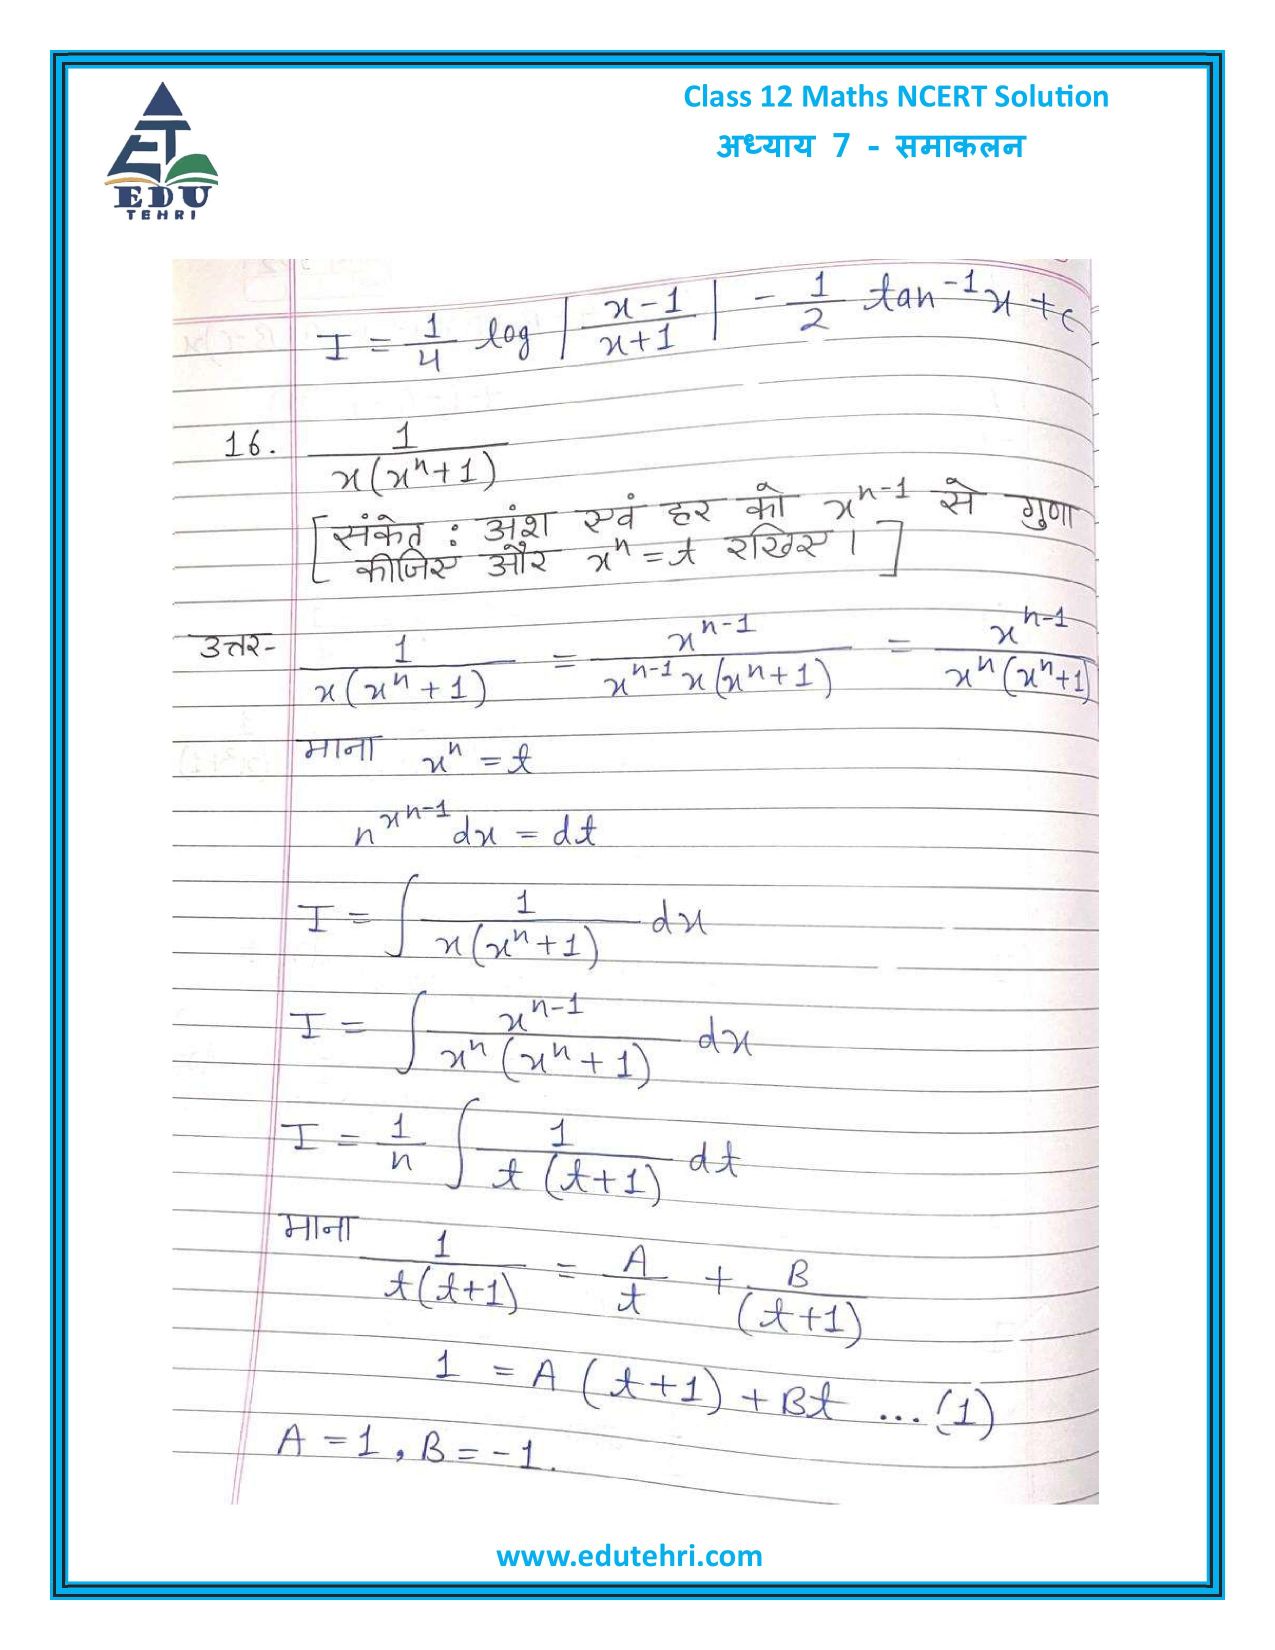 Class 12 Maths NCERT Solution
अध्याय 7 - समाकलन
EDU
TEHRI
I = 1/4 log |x-1/x+1| - 1/2 tan⁻¹x + c
16. 1/x(xⁿ+1)
[संकेत : अंश एवं हर को xⁿ⁻¹ से गुणा
कीजिए और xⁿ = t रखिए।]
उत्तर- 1/x(xⁿ+1) = xⁿ⁻¹/xⁿ⁻¹x(xⁿ+1) = xⁿ⁻¹/xⁿ(xⁿ+1)
माना xⁿ = t
nxⁿ⁻¹dx = dt
I = ∫ 1/x(xⁿ+1) dx
I = ∫ xⁿ⁻¹/xⁿ(xⁿ+1) dx
I = 1/n ∫ 1/t(t+1) dt
माना 1/t(t+1) = A/t + B/(t+1)
1 = A(t+1) + Bt ...(1)
A = 1, B = -1.
www.edutehri.com